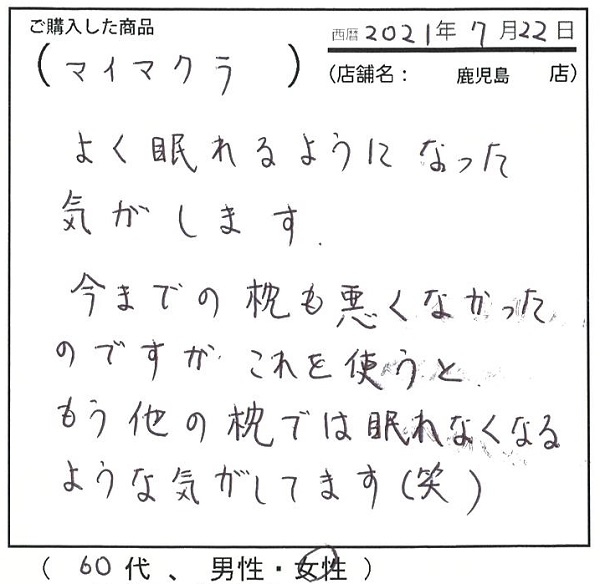 ご購入した商品
西暦 2021年 7月22日
(マイマクラ)
(店舗名: 鹿児島 店)
よく眠れるようになった
気がします.
今までの枕も悪くなかった
のですが これを使うと
もう他の枕では眠れなくなる
ような気がしてます(笑)
( 60代、男性・女性 )